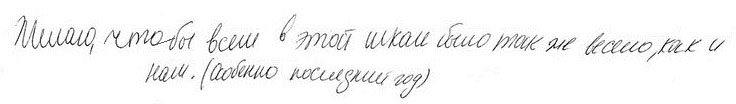 Желаю, чтобы всем в этой школе было так же весело, как и
нам. (Особенно последний год)